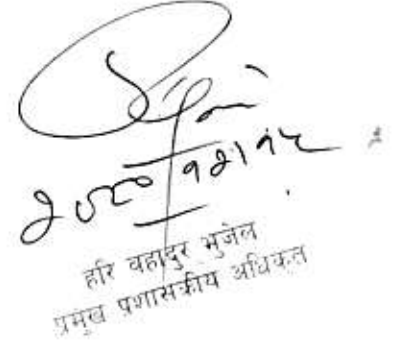 २०८०।१२।१५
हरि वहादुर भुजेल
प्रमुख प्रशासकीय अधिकृत